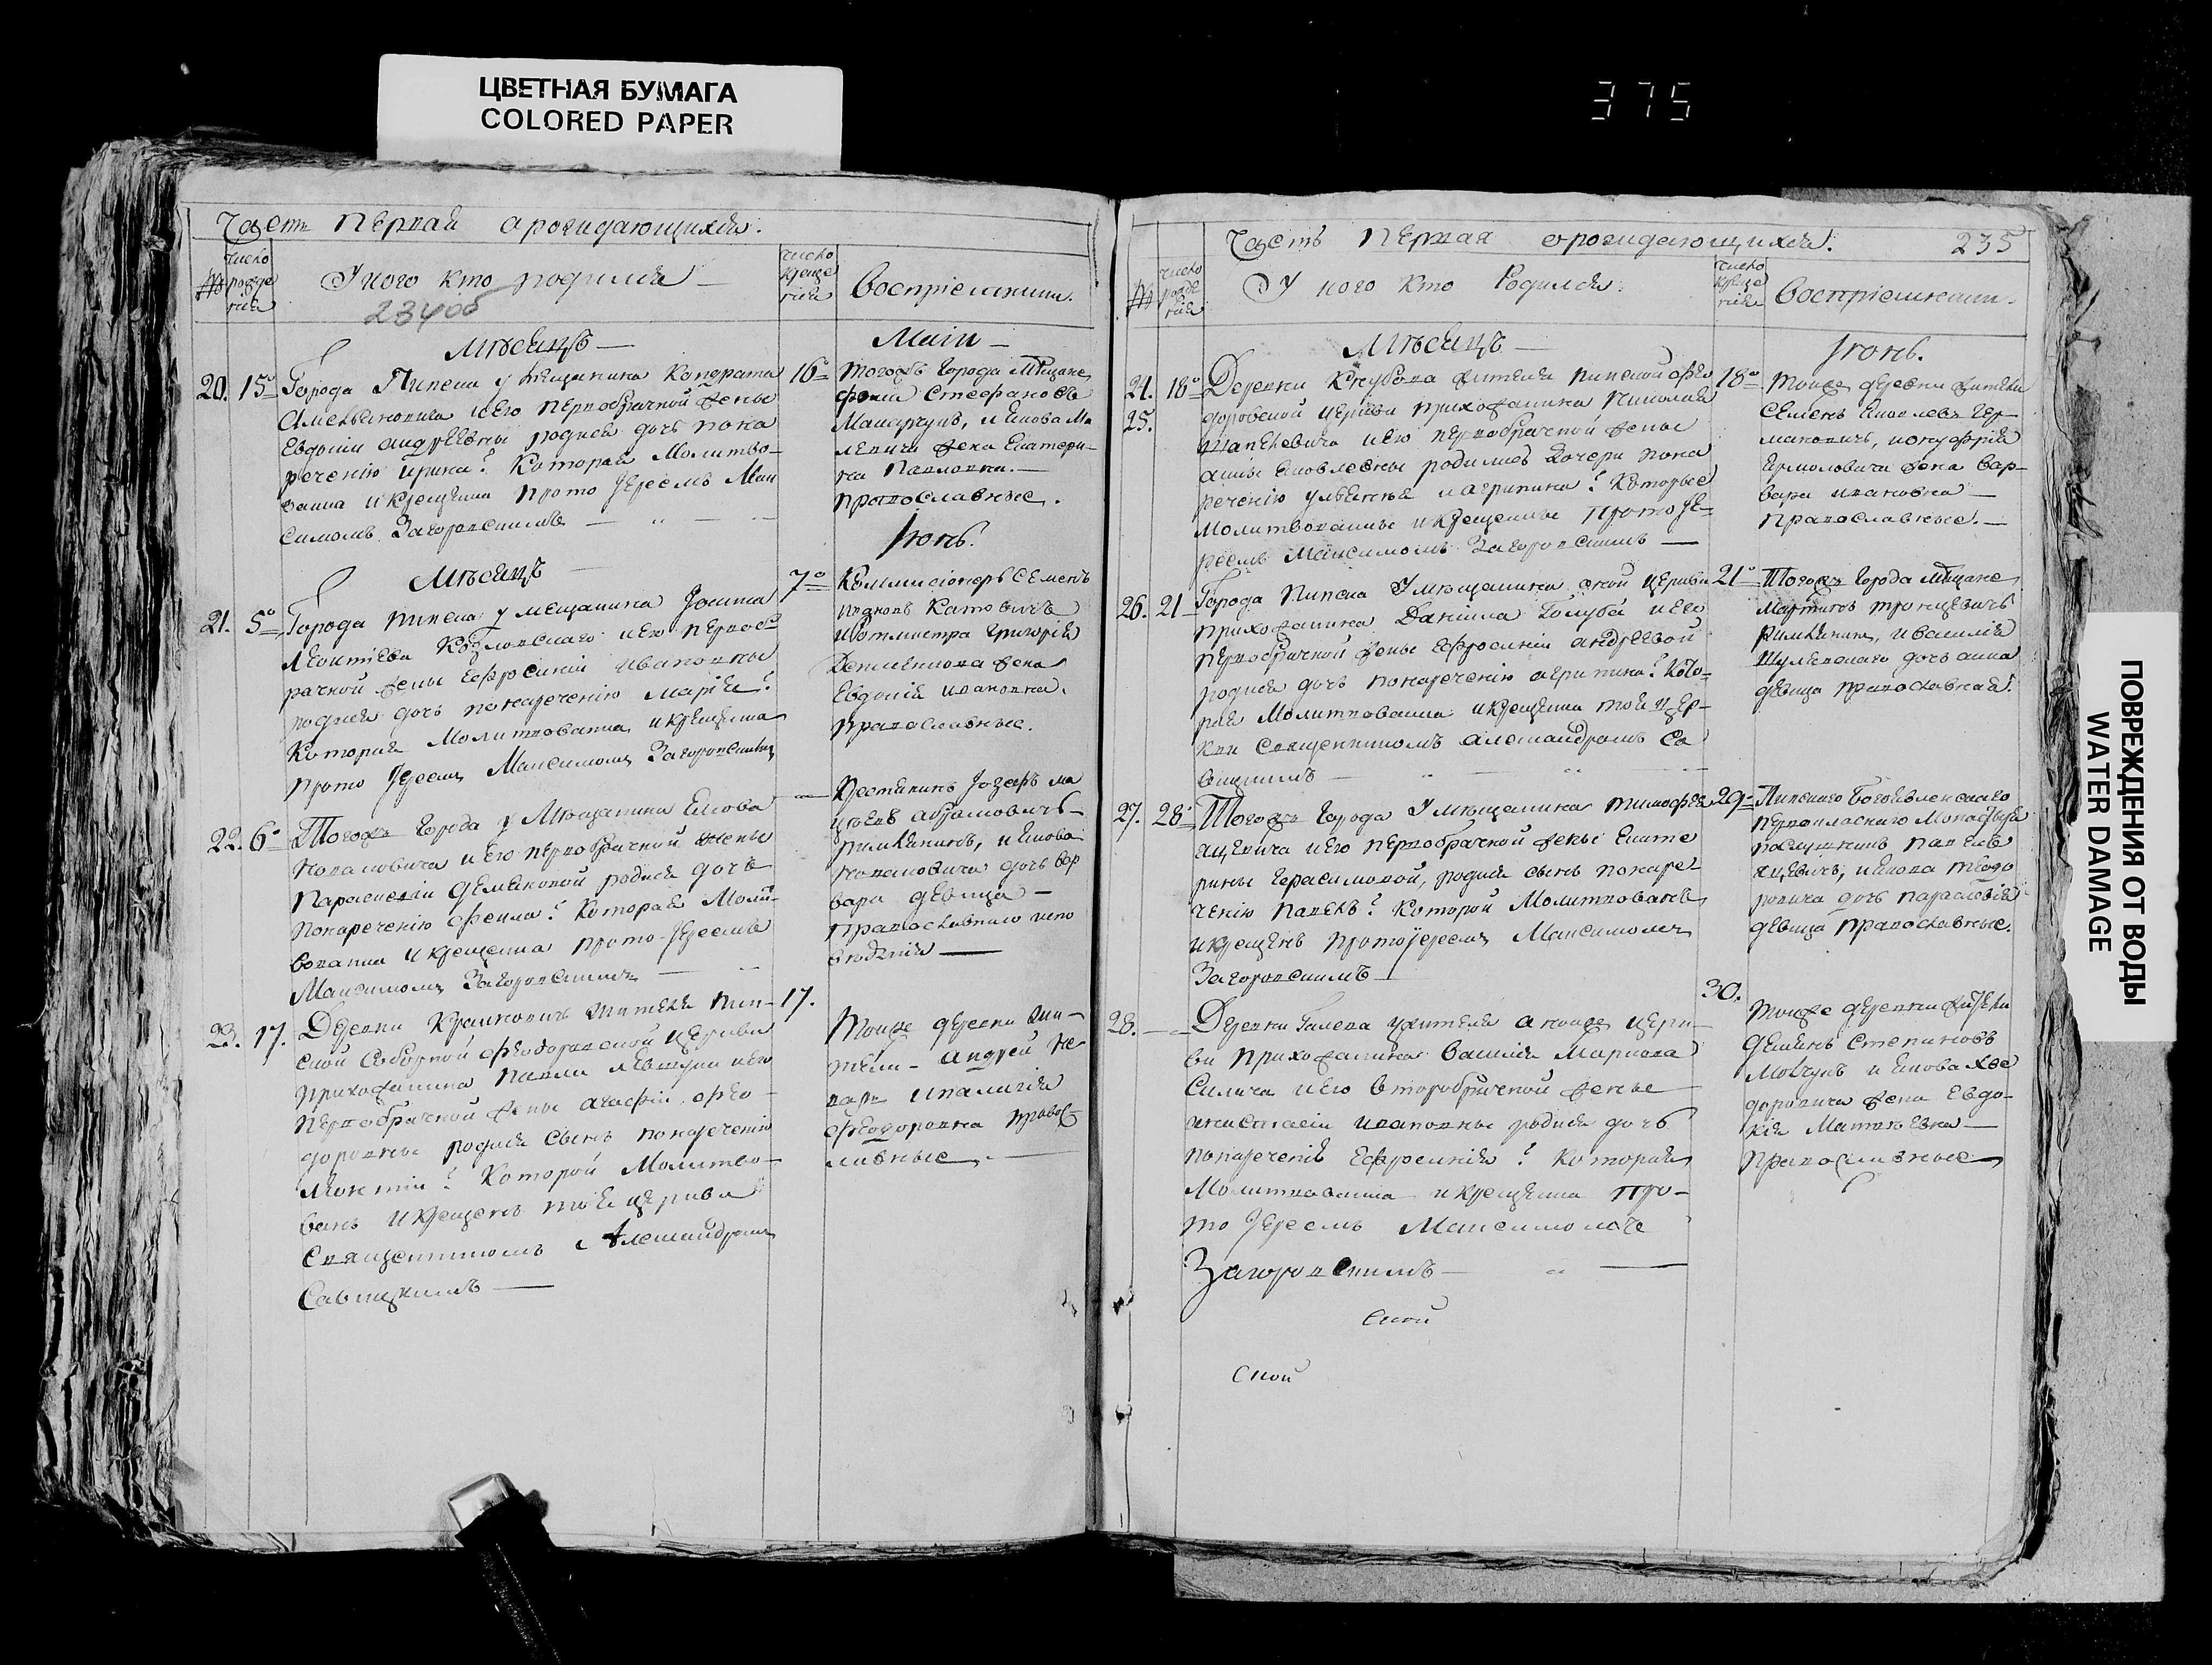 ЦВЕТНАЯ БУМАГА
COLORED PAPER
375
Часть первая о рождающихся.
№
число рожде ния
У кого кто родился
число креще ния
Восприемники.
234об
Мѣсяцъ —
Маіи —
20. 15 Города Пинска у мещанина Кондрата
и его первобрачной жены
Евдокіи Андреевны родися дочъ пона
реченію Ирина? Которая Молитво-
ванна и крещенна прото Іереемъ Мак
симомъ Загоровскимъ —
16 тогожъ города Мѣщане
Стефановъ
жена Екатери-
на Павловна. —
православные.
Іюнь.
Мѣсяцъ
21. 5 Города Пинска у мещанина
Леонтіева Козловскаго и его первоб
рачной жены Ефросиніи Ивановны
родися дочъ понареченію Марія?
Которая Молитвованна и крещенна
прото Іереемъ Максимомъ Загоровскимъ
7 Коммисіонеръ Семенъ
Григорія
жена
Евдокія Ивановна.
православные.
22. 6 Тогожъ города у Мѣщанина
и его первобрачной жены
Параскевіи Демяновой родися дочъ
понареченію Фекла? Которая Молит-
вованна и крещенна прото-Іереемъ
Максимомъ Загоровскимъ —
Іозефъ
Абрамовичъ
дочъ Вар
вара девица —
православнаго испо
23. 17. Деревни Жителя Пин-
ской Соборной Феодоровской Церкви
прихожанина Павла и его
первобрачной жены Агафіи Фео-
доровны родися Сынъ понареченію
Леонтій? Которой Молитво-
ванъ и крещенъ тоей церкви
Священникомъ Александромъ
Савицкимъ —
17.
Тоижъ деревни жи-
тели - Андрей
Феодоровна правос
лавные. —
Часть Первая о рождающихся. 235
№
число рожде ния
У кого кто Родился
число креще ния
Восприемники.
Мѣсяцъ —
Іюнь.
24. 18 Деревни жителя Пинской Фео
25. доровской Церкви прихожанина Николая
и его первобрачной жены
Анны Яковлевны родились дочери пона
реченію и Агрипина? Которые
Молитвованны и крещенны прото Іе-
реемъ Максимомъ Загоровскимъ —
18 Тоижъ деревни жители
Семенъ Яковлевъ Гер-
мановичъ, и Онуфрія
Ермоловича жена Вар-
вара Ивановна —
Православные. —
26. 21 Города Пинска У мѣщанина оной Церкви
прихожанина Даніила Голуба и его
первобрачной жены Ефросиніи Андреевой
родися дочъ понареченію Агрипина? Кото-
рая Молитвованна и крещенна тоей цер-
кви Священникомъ Александромъ Са
вицкимъ —
21 Тогожъ Города Мѣщане
Мартинъ
Римлянинъ, и Василія
дочъ Анна
девица православная.
27. 28 Тогожъ города У мѣщанина Тимофея
Яцевича и его первобрачной жены Екате
рины Герасимовой, родися сынъ понаре-
ченію Павелъ? Которой Молитвованъ
и крещенъ протоіереемъ Максимомъ
Загоровскимъ —
29 Пинскаго Богоявленскаго
первокласнаго Монастыря
послушникъ Павелъ
Яцевичъ, и Якова Теодо
ровича дочъ Параскевія
девица православные.
28. — Деревни Галева у жителя оноижъ церк-
ви прихожанина Василія
и его второбрачной жены
Анастасіи Ивановны родися дочъ
понареченію Ефросинія? Которая
Молитвованна и крещенна про-
то Іереемъ Максимомъ
Загоровскимъ —
30. Тоижъ деревни жители
Степановъ
и Якова Хве
доровича жена Евдо-
кія Матвѣевна —
Православные
ской
ской
ПОВРЕЖДЕНИЯ ОТ ВОДЫ
WATER DAMAGE